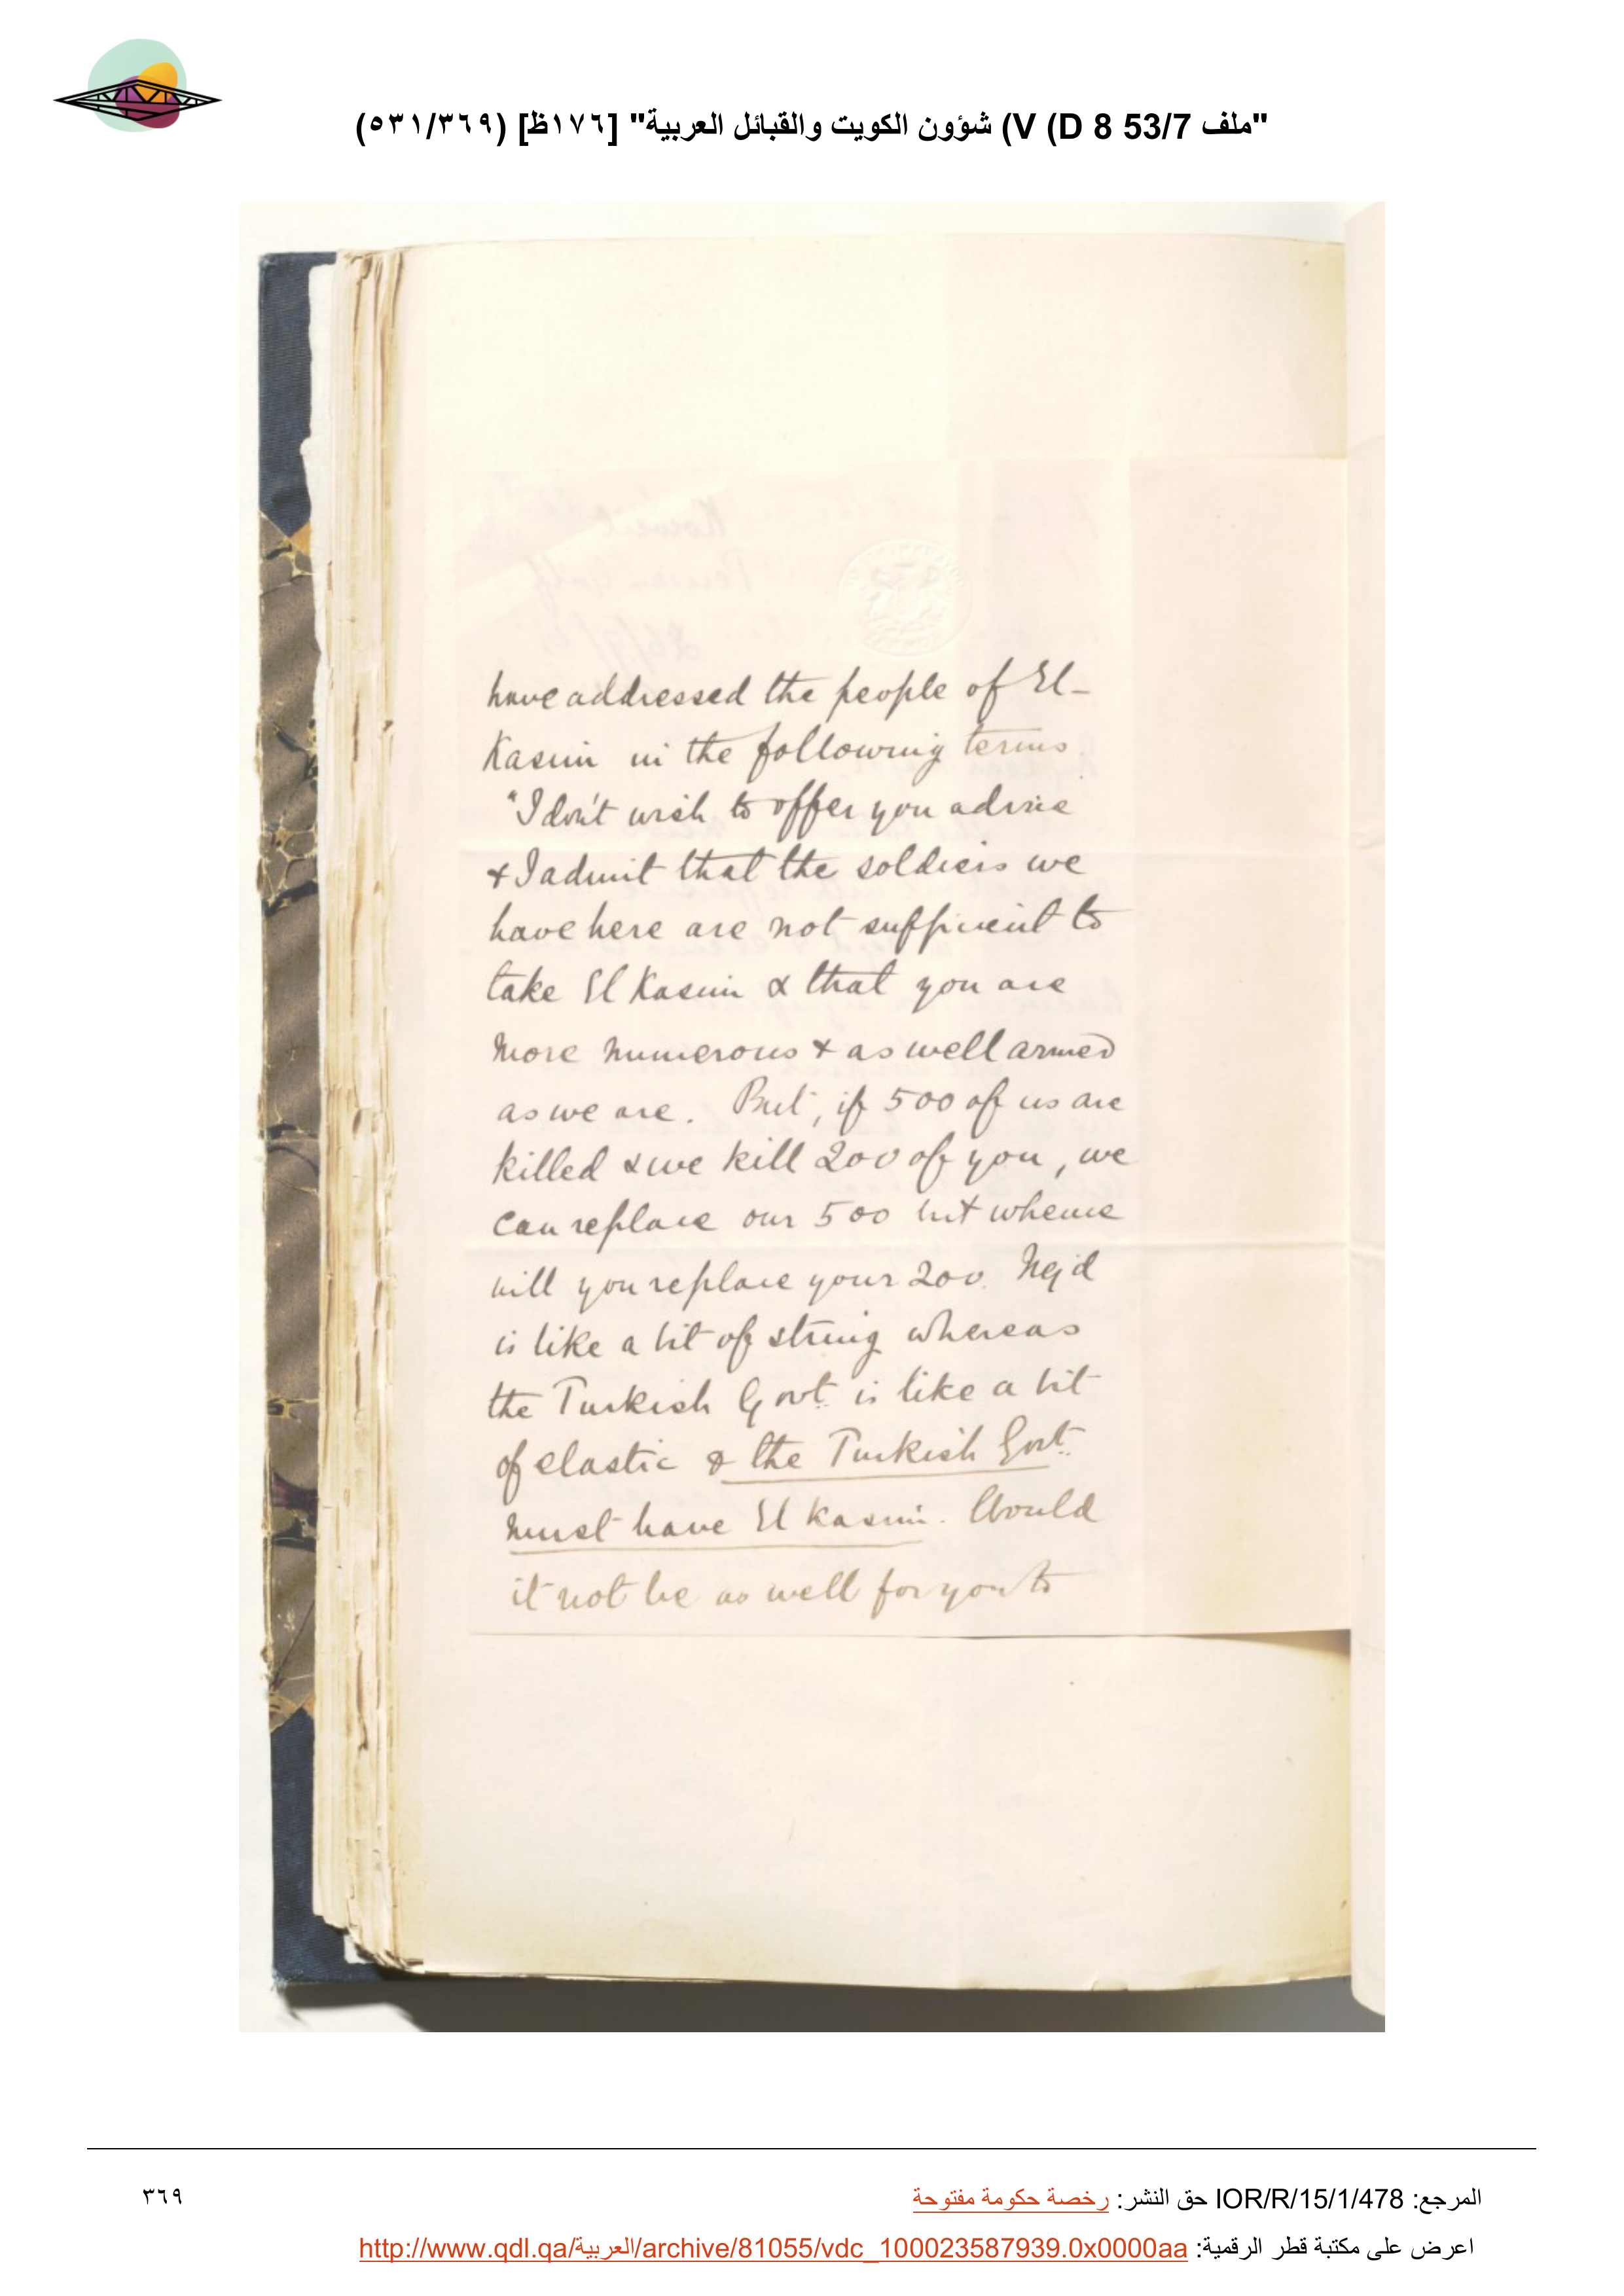 "ملف 53/7 V (D 8) شؤون الكويت والقبائل العربية" [١٧٦ظ] (٥٣١/٣٦٩)
have addressed the people of El-
Kasim in the following terms
"I don't wish to offer you advice
& I admit that the soldiers we
have here are not sufficient to
take El Kasim & that you are
more numerous & as well armed
as we are. But, if 500 of us are
killed & we kill 200 of you, we
can replace our 500 but whence
will you replace your 200. Nejd
is like a bit of string whereas
the Turkish Govt. is like a bit
of elastic & the Turkish Govt.
must have El Kasim. Would
it not be as well for you to
المرجع: IOR/R/15/1/478 حق النشر: رخصة حكومة مفتوحة
٣٦٩
اعرض على مكتبة قطر الرقمية: http://www.qdl.qa/العربية/archive/81055/vdc_100023587939.0x0000aa